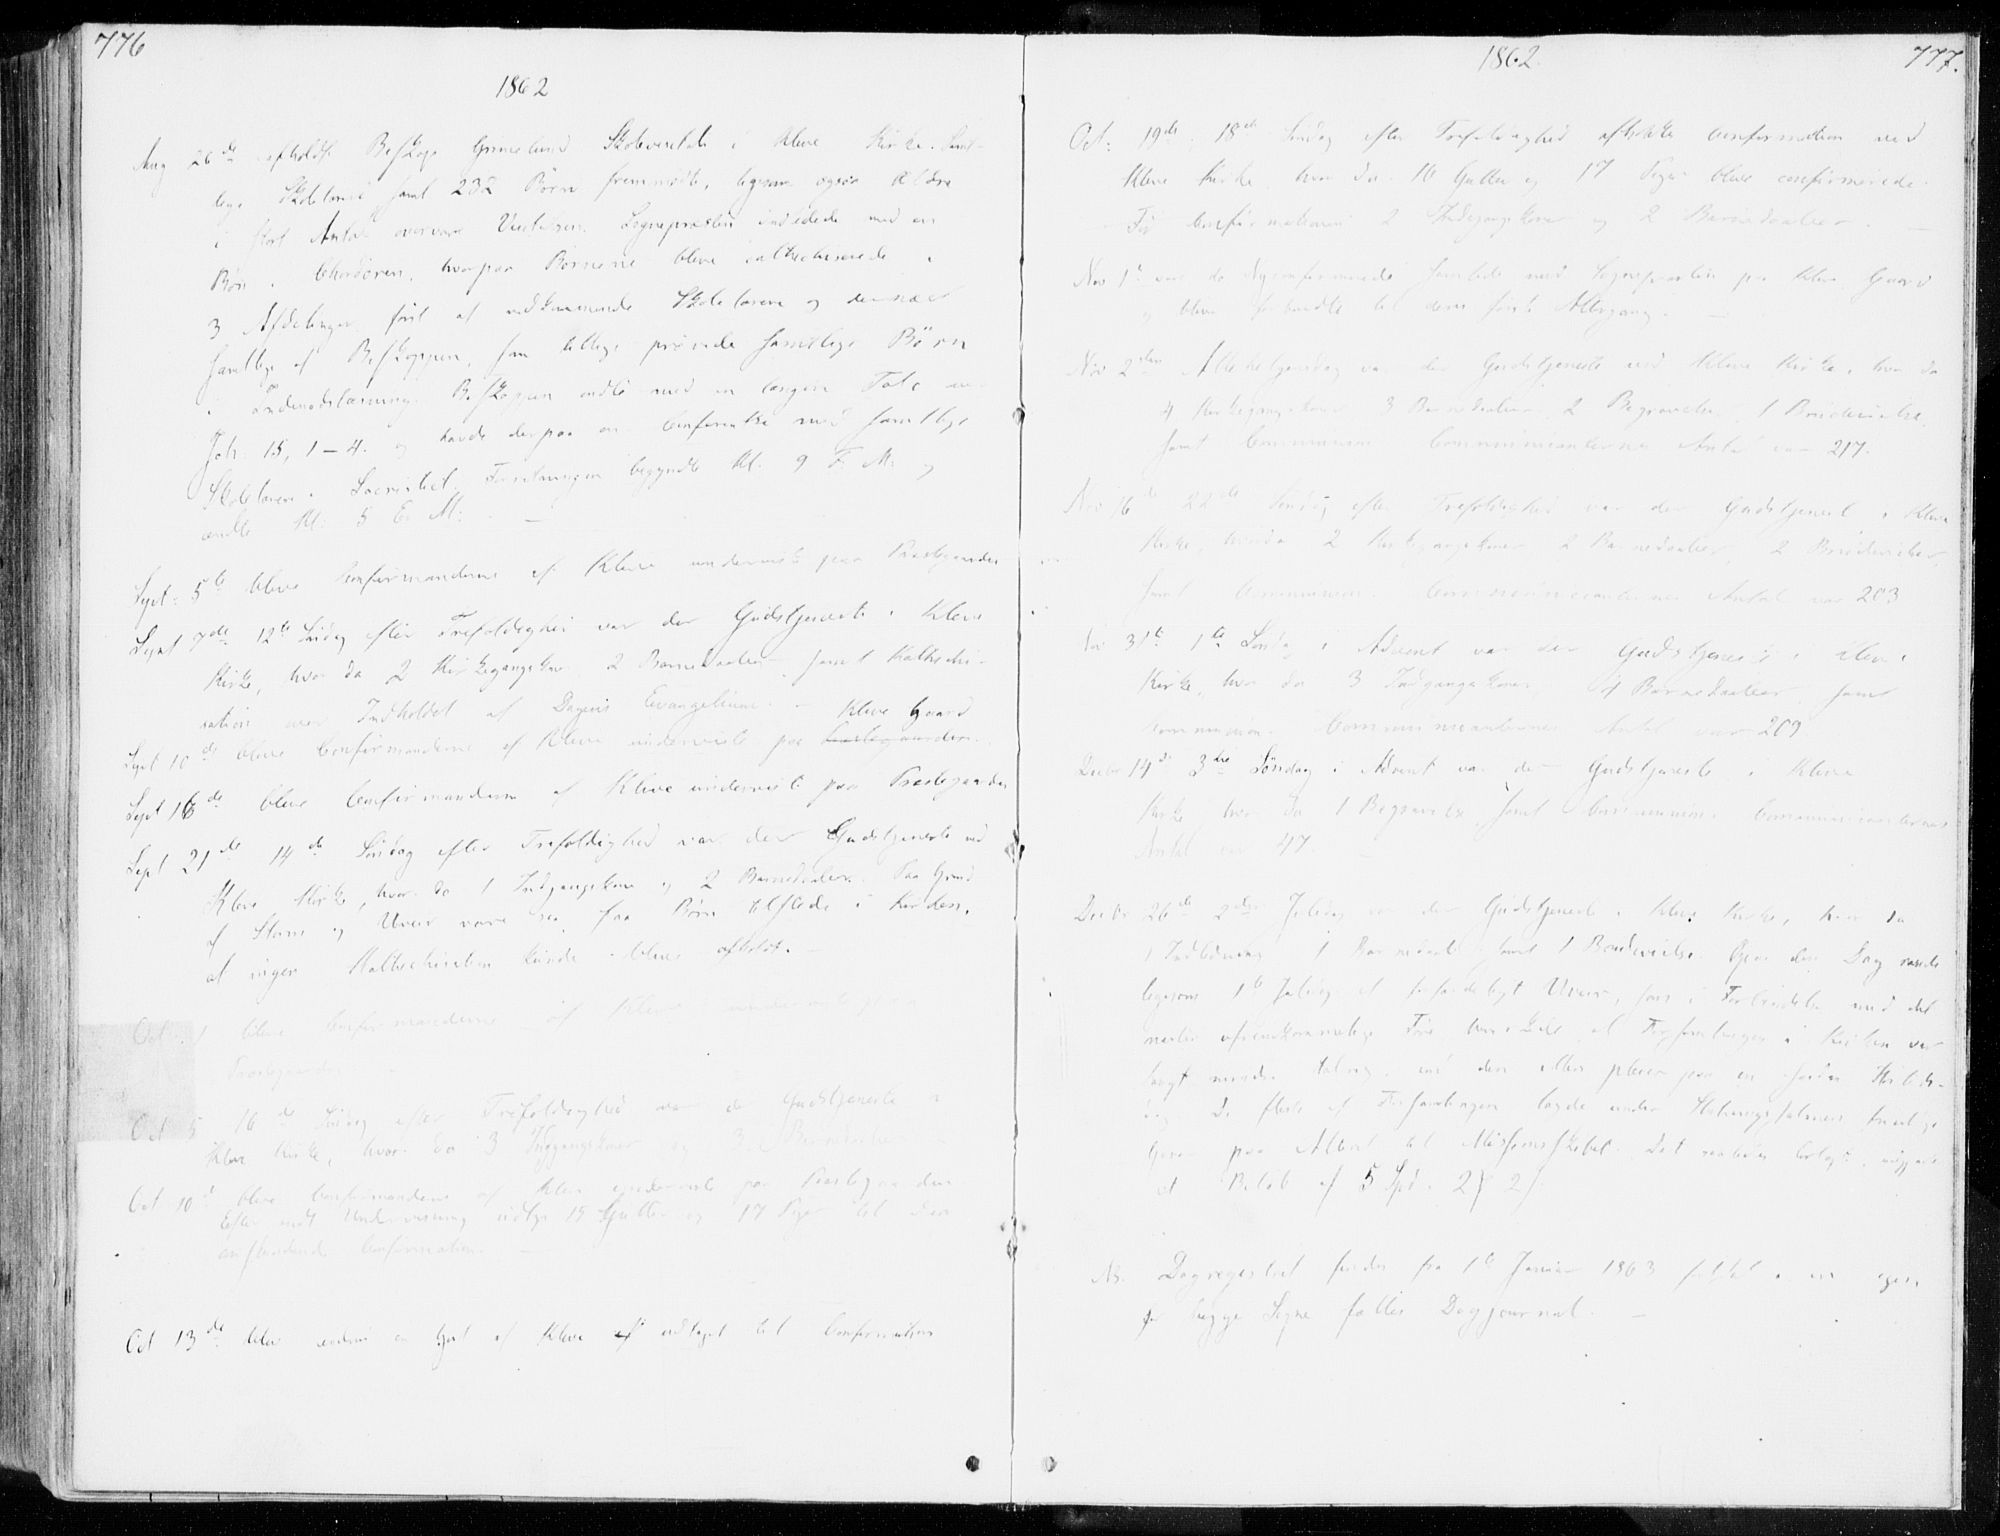 776
1862
Aug 26de afholdt Biskop Grimelund Skolevisitats i Kleve Kirke. Samt-
lige Skolelærere samt 232 Børn fremmødte, ligesom ogsaa Ældre
i stort Antal overvare Visitatsen. Sognepræsten indledede med en
Bøn i Chordøren, hvorpaa Børnene bleve cathechiserede i
3 Afdelinger først af vedkommende Skolelærere og dernæst
samtlige af Biskoppen, som tillige prøvede samtlige Børn
i Indenadslæsning. Biskoppen endte med en længere Tale over
Joh. 15, 1-4. og havde derpaa en Conferentse med samtlige
Skolelærere i Sacristiet. Forretningen begyndte Kl. 9 F. M. og
endte Kl: 5 E. M: —
Sept: 5te bleve Confirmanderne af Kleve underviste paa Præstegaarden
Sept 7de 12te Søndag efter Trefoldighed var der Gudstjeneste i Kleve
Kirke, hvor da 2 Kirkegangskoner 2 Barnedaaber samt Kathechi-
sation over Indholdet af Dagens Evangelium. —
Kleve Gaard
Sept 10de bleve Confirmanderne af Kleve underviste paa Præstegaarden.
Sept 16de bleve Confirmanderne af Kleve underviste paa Præstegaarden
Sept 21de 14de Søndag efter Trefoldighed var der Gudstjeneste ved
Kleve Kirke, hvor da 1 Indgangskone og 2 Barnedaaber. Paa Grund
af Storm og Uveir vare saa faa Børn tilstede i Kirken,
at ingen Kathechisation kunde blive afholdt. —
Oct. 1 bleve Confirmanderne af Kleve underviste paa
Præstegaarden. —
Oct 5 16de Søndag efter Trefoldighed var der Gudstjeneste i
Kleve Kirke, hvor da 3 Indgangskoner og 3 Barnedaaber
Oct 10de bleve Confirmanderne af Kleve underviste paa Præstegaarden.
Efter endt Undervisning udtoges 15 Gutter og 17 Piger til den
anstundende Confirmation. —
Oct 13de blev endnu en Gut af Kleve udtaget til Confirmation
1862.
777.
Oct: 19de. 18de Søndag efter Trefoldighed afholdtes Confirmation ved
Kleve Kirke hvor da 16 Gutter og 17 Piger bleve confirmerede.
— Før Confirmationen 2 Indgangskoner og 2 Barnedaaber. —
Nov 1ste var de Nyconfirmerede samlede med Sognepræsten paa Kleve Gaard
og bleve forberedte til deres første Altergang. —
Nov 2den Allehelgensdag var der Gudstjeneste ved Kleve Kirke, hvor da
4 Kirkegangskoner 3 Barnedaaber 2 Begravelser, 1 Brudevielse,
samt Communion Communicanternes Antal var 217.
Nov 16de 22de Søndag efter Trefoldighed var der Gudstjeneste i Kleve
Kirke, hvorda 2 Kirkegangskoner 2 Barnedaaber, 2 Brudevielser,
samt Communion. Communicanternes Antal var 203
1te Søndag i Advent var der Gudstjeneste i Kleve
Kirke, hvor da 3 Indgangskoner, Barnedaaber samt
Communion. Communicanternes Antal var 209.
Decbr 14de 3die Søndag i Advent var der Gudstjeneste i Kleve
Kirke hvor da 1 Begravelse, samt Communion. Communicanternes
Antal var 47. —
Decbr 26de 2den Juledag var der Gudstjeneste i Kleve Kirke, hvor da
1 Indledning 1 Barnedaab samt 1 Brudevielse. Paa den Dag rasede
ligesom 1ste Juledag et forfærdeligt Uveir, som i Forbindelse med det
næsten ufremkommelige Føre bevirkede at Forsamlingen i Kirken var
langt mindre talrig, end den ellers pleier paa en saadan Høitids-
dag. De fleste af Forsamlingen lagde under Slutningspsalmen frivillige
Gaver paa Alteret til Missionsselskabet. Det saaledes udgjorde
et Beløb af 5 Spd. 2
NB. Dagregistret findes fra 1te Januar 1863 i en egen
for begge Sogne fælles Dagjournal. —